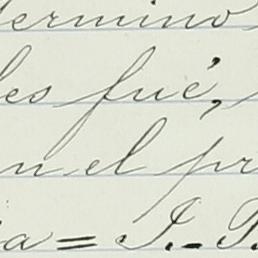 ermino
les fué,
n el pr
ia = I. P.